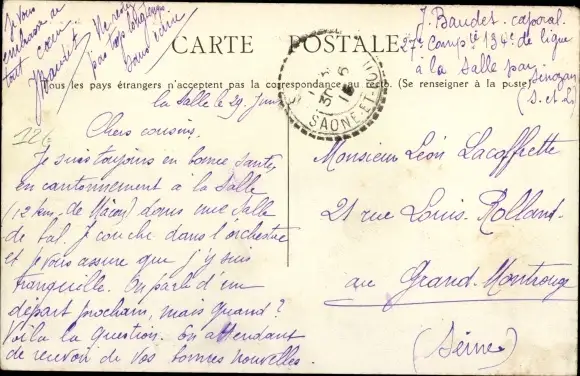 Je vous
embrasse de
tout cœur.
JBaudet
Ne restez
pas trop longtemps
sans écrire
CARTE POSTALE
Tous les pays étrangers n'acceptent pas la correspondance au recto. (Se renseigner à la poste)
J. Baudet. caporal.
27e Compie 134e de ligne
à la Salle par
Senozan
(S. et L)
SAONE-ET-LOIRE
la Salle le 29 Juin
126
Chers cousins.
Je suis toujours en bonne santé,
en cantonnement à la Salle
(12 km. de Mâcon) dans une salle
de bal. Je couche dans l'orchestre
et je vous assure que j'y suis
tranquille. On parle d'un
départ prochain, mais quand?
Voilà la question. En attendant
de recevoir de vos bonnes nouvelles.
Monsieur Léon Lacoffrette
21 rue Louis-Rolland.
au Grand-Montrouge
(Seine)